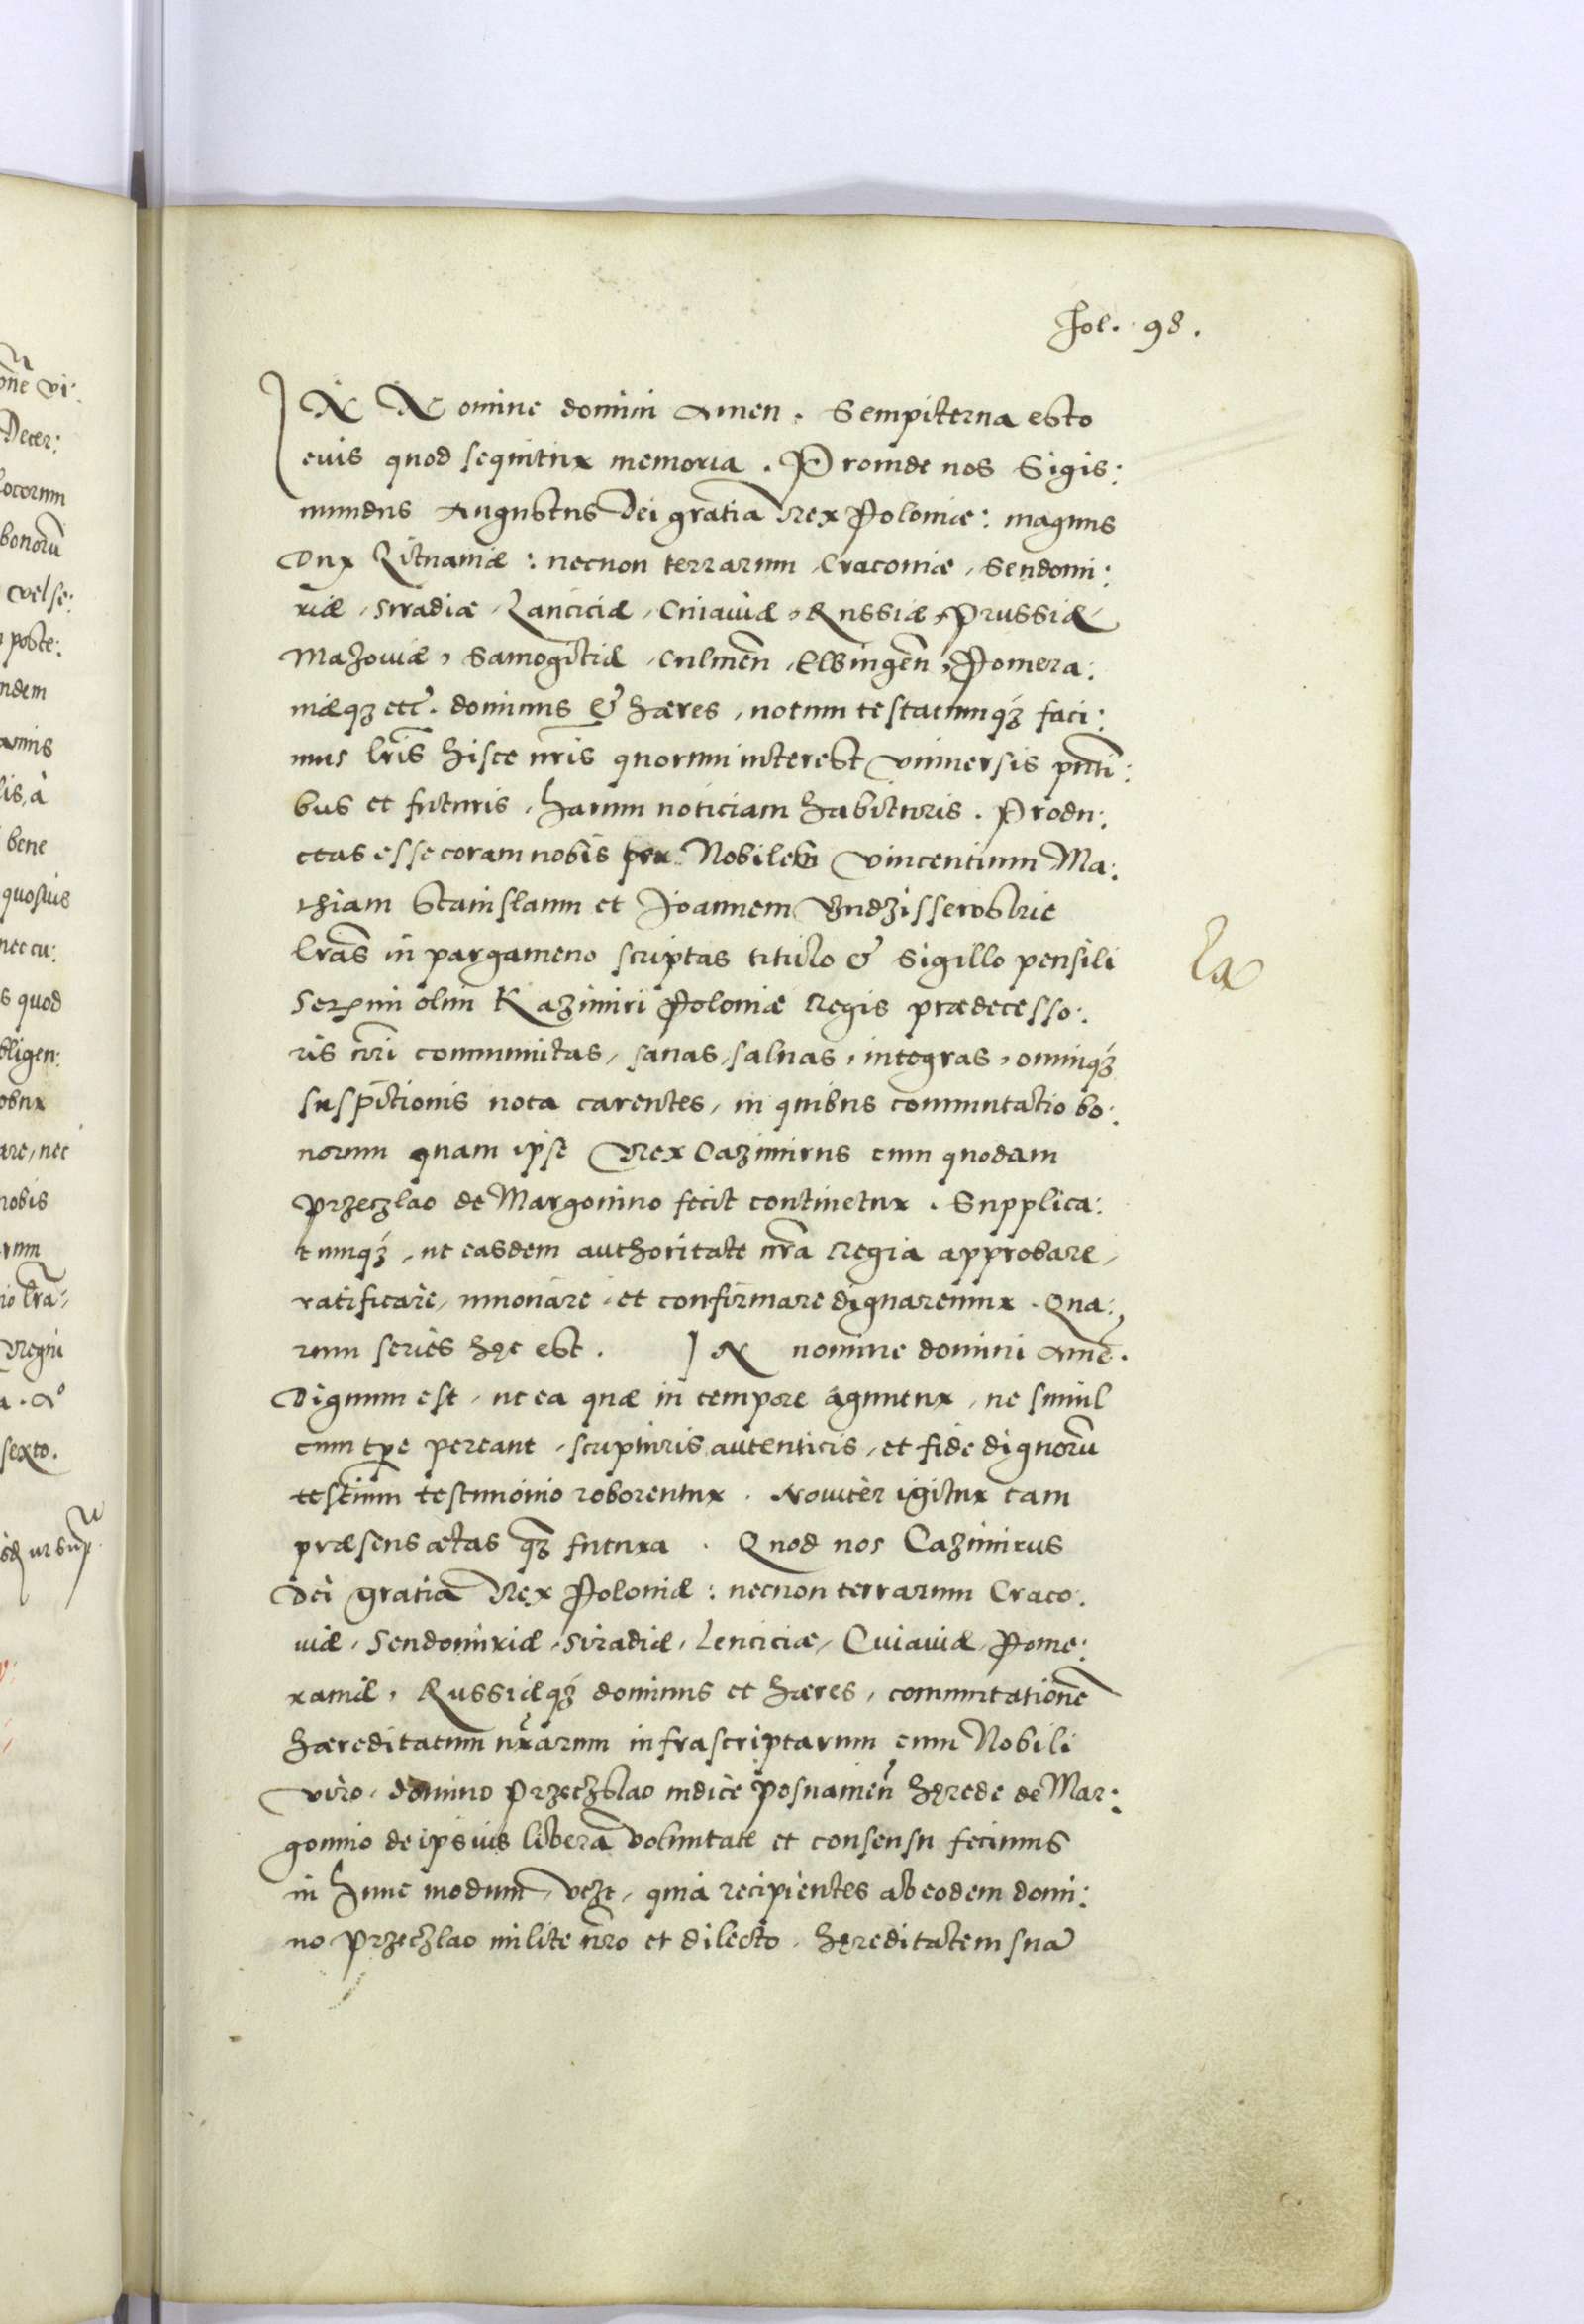 fol. 98.
IN Nomine domini Amen. Sempiterna esto
euis quod sequitur memoria. Proinde nos Sigis:
mundus Augustus Dei gratia Rex Poloniæ: magnus
Dux Lituaniæ: necnon terrarum, Cracouiæ, Sendomi:
riæ, Siradiæ, Lanciciæ, Cuiauiæ, Russiæ, Prussiæ,
Mazouiæ, Samogitiæ, Culmeñ, Elbingeñ, Pomera:
niæq꜄ etc̃. dominus & hæres, notum testatumq꜄ faci:
mus lr̃is hisce nr̃is quorum interest vniuersis pñti:
bus et futuris, harum noticiam habituris. Produ:
ctas esse coram nobis per Nobiles Vincentium Ma:
thiam Stanislaum et Joannem
lr̃as in pargameno scriptas titulo & sigillo pensili
Ser̃mi olim Kazimiri Poloniæ Regis prædecesso:
La
ris nr̃i communitas, sanas, saluas, integras, omniq꜄
suspitionis nota carentes, in quibus commutatio bo:
norum quam ipse Rex Cazimirus cum quodam
Przeczlao de Margonino fecit continetur. Supplica:
tumq꜄, ut easdem authoritate nr̃a Regia approbare,
ratificare, innouare, et confirmare dignaremur. Qua:
rum series hęc est. IN nomine domini Amẽ.
Dignum est, ut ea quæ in tempore aguntur, ne simul
cum tp̃e pereant, scripturis autenticis, et fide dignorũ
testium testimonio roborentur. Nouerit igitur tam
præsens ætas q꜄ futura. Quod nos Cazimirus
Dei gratia Rex Poloniæ: necnon terrarum Craco:
uiæ, Sendomiriæ, Siradiæ, Lenciciæ, Cuiauiæ, Pome:
raniæ, Russiæq꜄ dominus et hæres, commutationẽ
hæreditatum nr̃arum infrascriptarum cum Nobili
viro, domino Przeczslao iudice posnanieñ hęrede de Mar:
gonino de ipsius libera voluntate et consensu fecimus
in hunc modum, , quia recipientes ab eodem domi:
no Przeczlao milite nr̃o et dilecto, hęreditatem suã